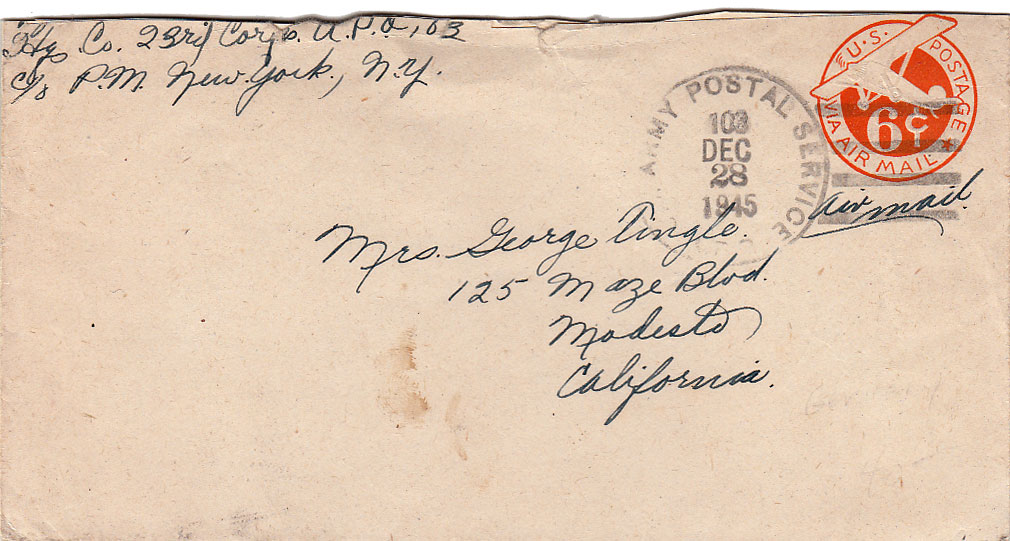 Hqs Co. 23rd Corps. A.P.O., 103
c/o P.M. New York, N.Y.
U.S. POSTAGE
6¢
VIA AIR MAIL
ARMY POSTAL SERVICE
103
DEC
28
1945
Air mail
Mrs. George Tingle.
125 Maze Blvd.
Modesto
California.